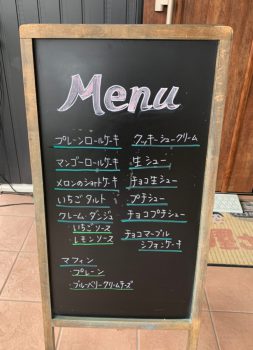 Menu
プレーンロールケーキ
マンゴーロールケーキ
メロンのショートケーキ
いちごタルト
クレーム・ダンジュ
・いちごソース
・レモンソース
マフィン
・プレーン
・ブルーベリークリームチーズ
クッキーシュークリーム
生シュー
チョコ生シュー
プチシュー
チョコプチシュー
チョコマーブル
シフォンケーキ